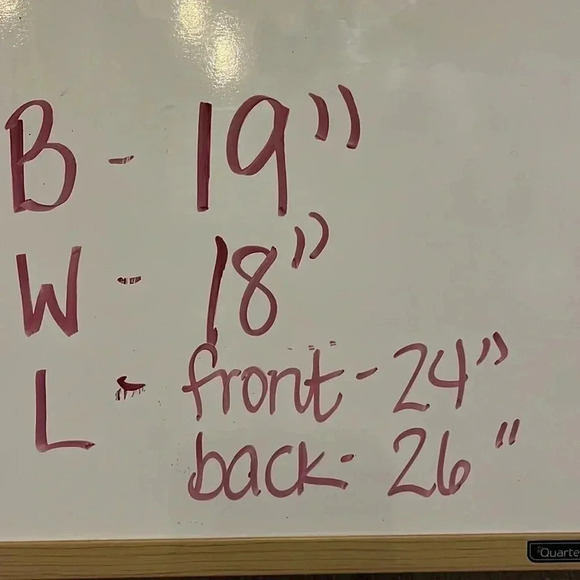 B - 19"
W - 18"
L - front - 24"
back - 26"
Quarte